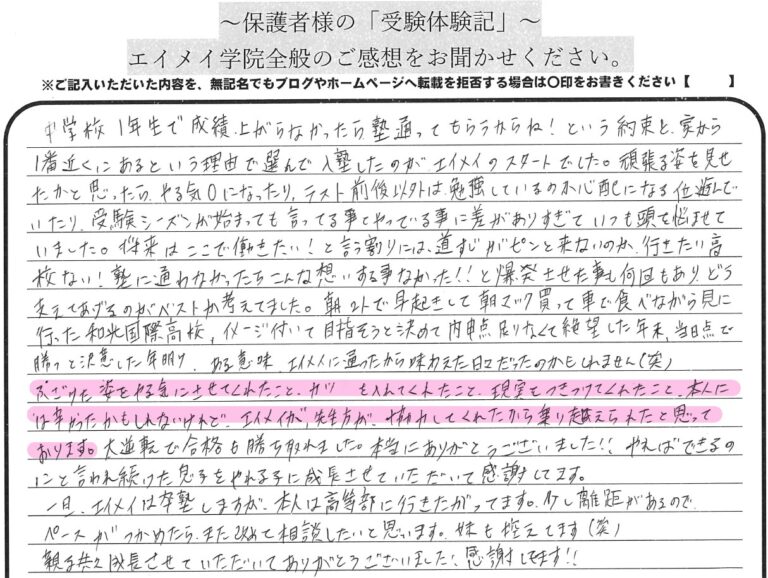 ～保護者様の「受験体験記」～
エイメイ学院全般のご感想をお聞かせください。
※ご記入いただいた内容を、無記名でもブログやホームページへ転載を拒否する場合は〇印をお書きください【　　】
中学校1年生で成績上がらなかったら塾通ってもらうからね！という約束と、家から
1番近くにあるという理由で選んで入塾したのがエイメイのスタートでした。頑張る姿を見せ
たかと思ったら、やる気0になったり、テスト前後以外は勉強しているのか心配になる位遊んで
いたり、受験シーズンが始まっても言ってる事とやっている事に差がありすぎていつも頭を悩ませて
いました。将来はここで働きたい！と言う割りには、道すじがピンと来ないのか、行きたい高
校ない！塾に通わなかったらこんな想いする事なかった！！と爆発させた事も何回もあり、どう
支えてあげるのがベストか考えてました。朝2人で早起きして朝マック買って車で食べながら見に
行った和光国際高校、イメージ付いて目指そうと決めて内申点足りなくて絶望した年末、当日点で
勝つと決意した年明け、ある意味、エイメイに通ったから味わえた日々だったのかもしれません(笑)
ふざけた姿をやる気にさせてくれたこと、カツも入れてくれたこと、現実をつきつけてくれたこと、本人に
は辛かったかもしれないけれど、エイメイが、先生方が、協力してくれたから乗り越えられたと思って
おります。大逆転で合格も勝ち取れました。本当にありがとうございました！！やればできるの
にと言われ続けた息子をやれる子に成長させていただいて感謝してます。
一旦、エイメイは卒塾しますが、本人は高等部に行きたがってます。少し離距があるので、
ペースがつかめたら、また改めて相談したいと思います。妹も控えてます(笑)
親子共々成長させていただいてありがとうございました。感謝してます！！